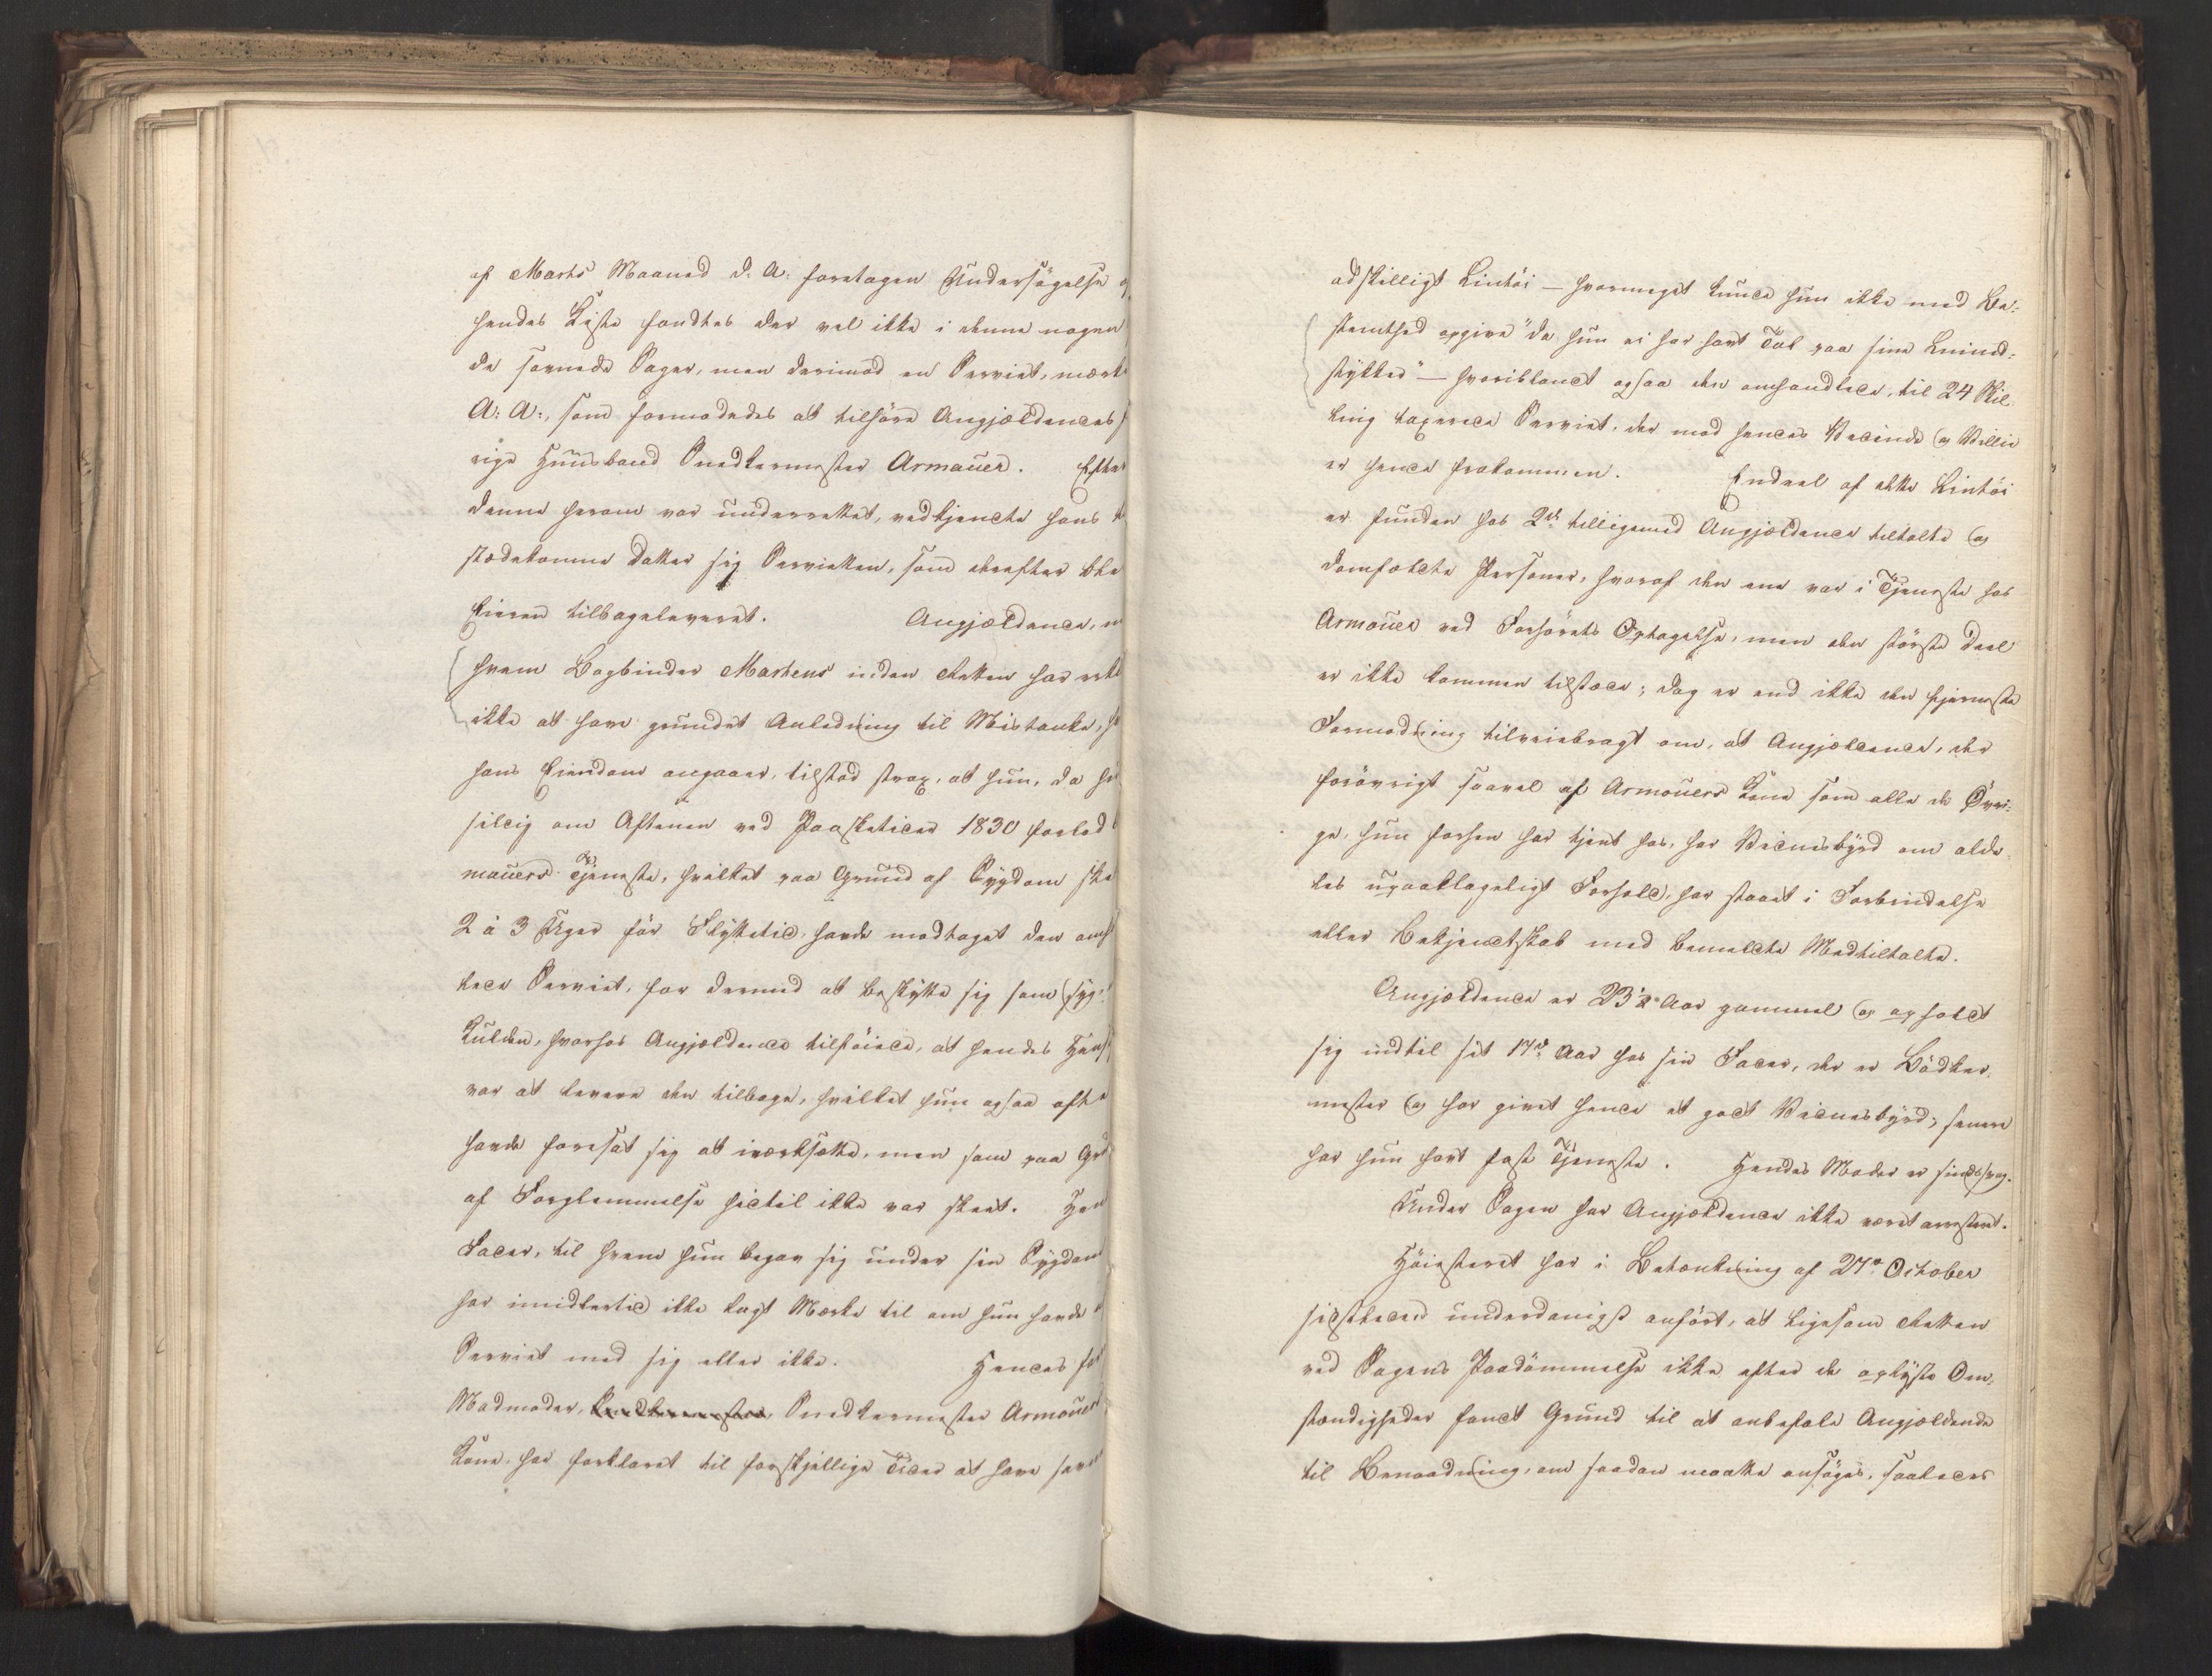 af Marts Maaned d. A. foretagen Undersøgelse
hendes Kiste fandtes der vel ikke i denne nogen
de savnede Sager, men derimod en Serviet, mærk
A: A:, som formodedes at tilhøre Angjældendes
rige Huusbond Snedkermester Armauer. Efter
denne herom var underrettet, vedkjendte hans
stædekomne Datter sig Servietten, som derefter ble
Eieren tilbageleveret. Angjældende,
hvem Bogbinder Martens inden Retten har erkl
ikke at have grundet Anledning til Mistanke,
hans Eiendom angaaer, tilstod strax, at hun, da
sildig om Aftenen ved Paasketider 1830 forlod
mauers Tjeneste, hvilket paa Grund af Sygdom
2 à 3 Uger før Flyttetid, havde modtaget den
lede Serviet, for dermed at beskytte sig som syg
Kulden, hvorhos Angjældende tilføiede, at hendes
var at levere den tilbage, hvilket hun ogsaa ofte
havde foresat sig at iværksætte, men som paa
af Forglemmelse hidtil ikke var skeet.
Fader, til hvem hun begav sig under sin Sygdom
har imidlertid ikke lagt Mærke til om hun havde
Serviet med sig eller ikke. Hendes
Madmoder, Snedkermester Armauers
Kone, har forklaret til forskjellige Tider at have
adskilligt Lintøi — hvormeget kunde hun ikke med Be-
stemthed opgive "da hun ei har havt Tal paa sine Linned-
stykker" — hvoriblandt ogsaa den omhandlede, til 24 Skil-
ling taxerede Serviet, der mod hendes Vidende og Villie
er hende frakommen. Endeel af dette Lintøi
er funden hos 2de tilligemed Angjældende tiltalte og
domfældte Personer, hvoraf den ene var i Tjeneste hos
Armauer ved Forhørets Optagelse, men den største Deel
er ikke kommen tilstæde; dog er end ikke den fjerneste
Formodning tilveiebragt om, at Angjældende, der
forøvrigt saavel af Armauers Kone som alle de Øvri-
ge, hun forhen har tjent hos, har Vidnesbyrd om alde-
les upaaklageligt Forhold, har staaet i Forbindelse
eller Bekjendtskab med bemeldte Medtiltalte.
Angjældende er 23½ Aar gammel og opholdt
sig indtil sit 17de Aar hos sin Fader, der er Bødker-
mester og har givet hende et godt Vidnesbyrd; senere
har hun havt fast Tjeneste. Hendes Moder er sindssvag.
Under Sagen har Angjældende ikke været arresteret.
Høiesteret har i Betænkning af 27de October
sidstleden underdanigst anført, at ligesom Retten
ved Sagens Paadømmelse ikke efter de oplyste Om-
stændigheder fandt Grund til at anbefale Angjældende
til Benaadning, om saadan maatte ansøges, saaledes